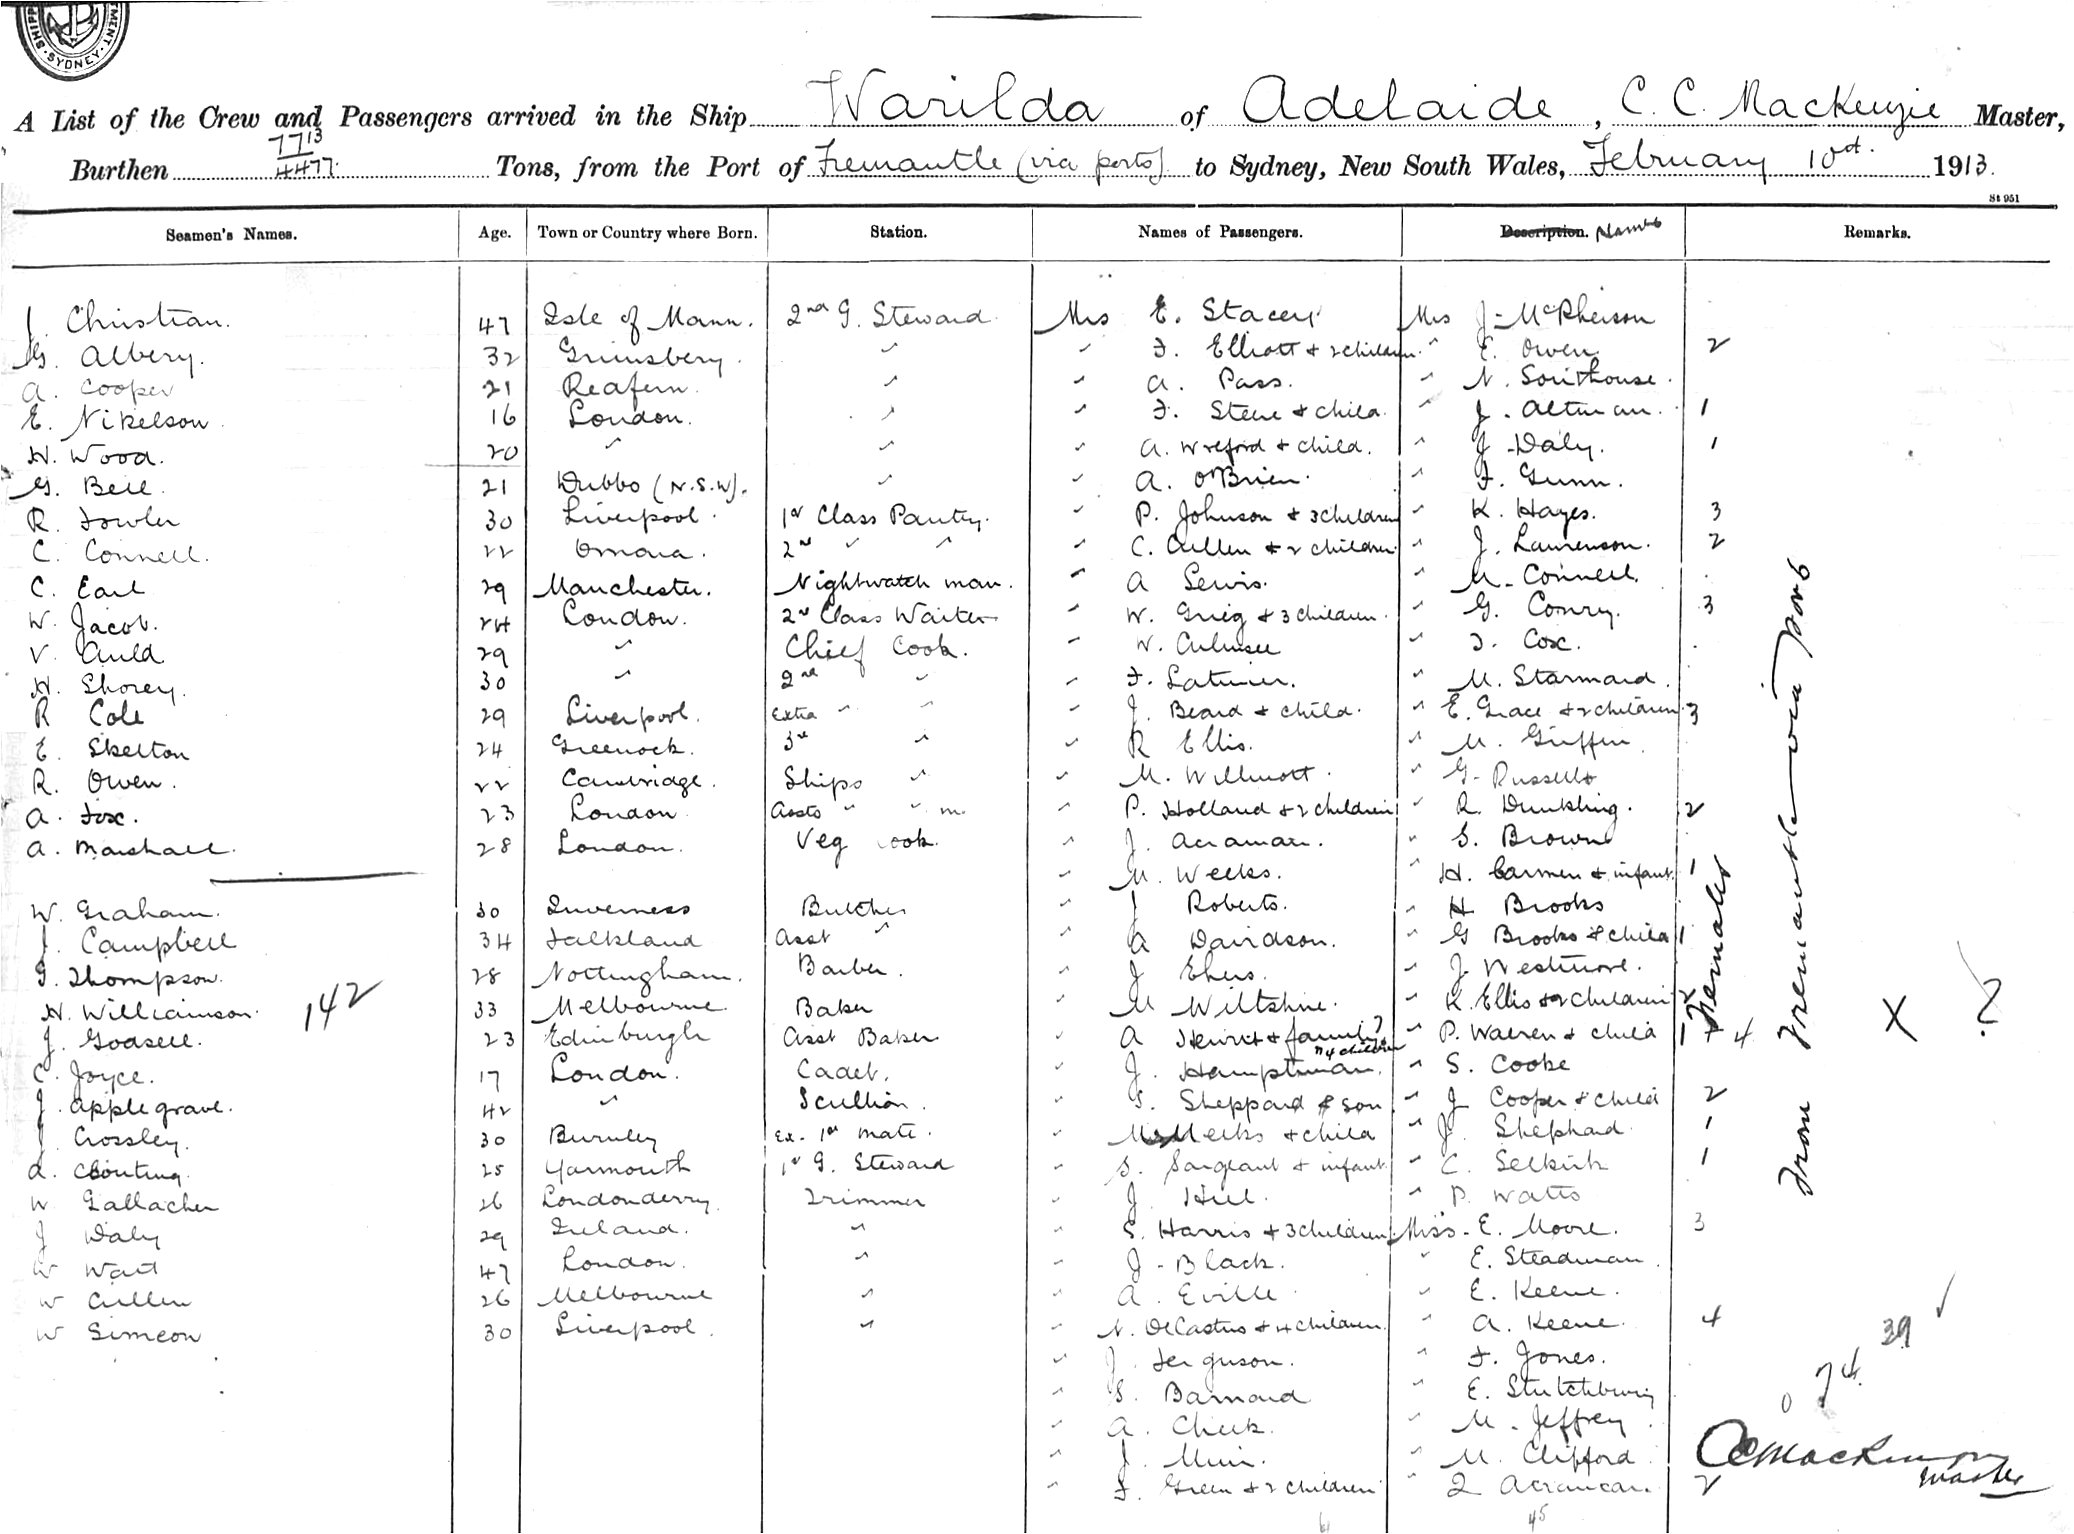 SHIPP MENT. SYDNEY.
A List of the Crew and Passengers arrived in the Ship Warilda of Adelaide, C. C. MacKenzie Master,
Burthen 7713 / 4477 Tons, from the Port of Fremantle (via ports) to Sydney, New South Wales, February 10th 1913.
St 951
Seamen's Names. Age. Town or Country where Born. Station. Names of Passengers. Description. Names Remarks.
J. Christian. 47 Isle of Mann. 2nd G. Steward Mrs E. Stacey Mrs J. McPherson
G. Albery. 32 Grimsbery. " " F. Elliott & 2 children " E. Owen 2
A. Cooper 21 Reafern. " " A. Pass. " N. Southouse.
E. Nikelson 16 London. " " F. Steve & child " J. Altman. 1
H. Wood. 20 " " " A. Wreford & child. " J. Daly. 1
G. Bell. 21 Dubbo (N.S.W). " " A. O'Brien. " F. Gunn.
R. Fowler 30 Liverpool. 1st Class Pantry. " P. Johnson & 3 children " K. Hayes. 3
C. Connell. 22 Omora. 2nd " " " C. Cullen & 2 children. " J. Laurenson. 2
C. Earl 29 Manchester. Nightwatch man. " A Lewis. " M. Connell.
W. Jacob. 24 London. 2nd Class Waiter " W. Grieg & 3 children. " G. Conry. 3
V. Auld 29 " Chief Cook. " W. " F. Cox.
H. Shorey. 30 " 2nd " " F. Latimer. " M. Starmard.
R Cole 29 Liverpool. Extra " " " J. Beard & child. " E. Grace & 2 children. 3
E. Skelton 24 Greenock. 3rd " " R Ellis. " M. Griffin.
R. Owen. 22 Cambridge. Ships " " M. Willmott. " G. Russell
A. Fox. 23 London Assts " " m. " P. Holland & 2 children " R. Dunkling. 2
A. Marshall. 28 London. Veg Cook. " J. Acraman. " S. Brown
" M. Weeks. " H. Carmen & infant. 1
W. Graham. 30 Inverness Butcher " J Roberts. " H Brooks
J. Campbell 34 Falkland Asst " " A Davidson. " G Brooks & child 1
G. Thompson. 28 Nottingham. Barber. " J Ehers. " J. Westmore.
H. Williamson. 142 33 Melbourne Baker " M Wiltshire. " K. Ellis & 2 children 2
J. Godsell. 23 Edinburgh Asst Baker " A & family? " P. Warren & child 1 + 4
? 4 children
C. Joyce. 17 London. Cadet. " J. Hamptman. " S. Cooke
J. Applegrave. 42 " Scullion. " S. Sheppard & son " J Cooper & child 2
J. Crossley. 30 Burnley Ex. 1st Mate. " Meeks & child " J. Shephard 1
A. Clouting. 25 Yarmouth 1st G. Steward " S. Sargeant & infant " C. Selkirk 1
W Gallacher 26 Londonderry Trimmer " J. Hill. " P. Watts
J Daly 29 Ireland. " " E. Harris & 3 children Miss. E. Moore. 3
W Wait 47 London. " " J. Black. " E. Steadman
W Cullen 26 Melbourne " " A. Eville " E. Keene.
W Simeon 30 Liverpool. " " N. DeCastro & 4 children. " A. Keene. 4
" J. Ferguson. " F. Jones.
" S. Barnard " E. Stutchbury
" A. Cheek. " M. Jeffrey
" J. Muir. " M. Clifford
" F. Green & 2 children " Acraman. 2
45
Females
From Fremantle via ports
X ?
39
0 74
CCMacKenzie
Master